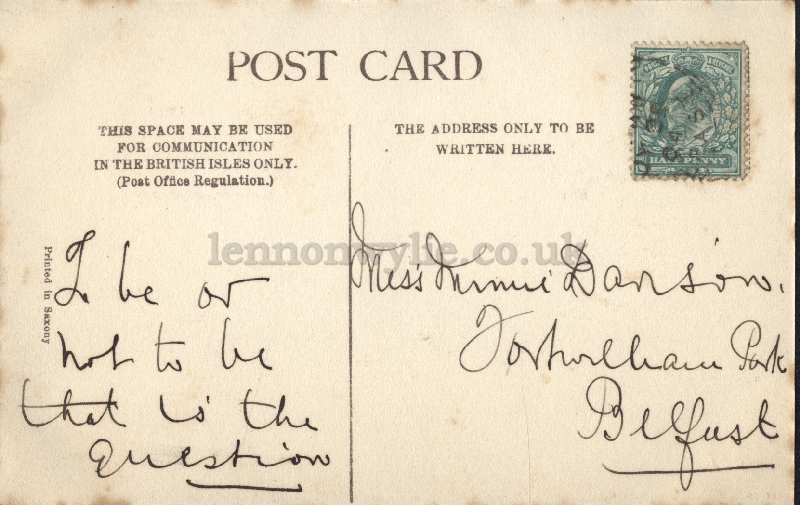 POST CARD
THIS SPACE MAY BE USED
FOR COMMUNICATION
IN THE BRITISH ISLES ONLY.
(Post Office Regulation.)
THE ADDRESS ONLY TO BE
WRITTEN HERE.
HALFPENNY
lennonwylie.co.uk
Printed in Saxony
To be or
not to be
that is the
question
Miss Minnie Davison.
Fortwilliam Park
Belfast